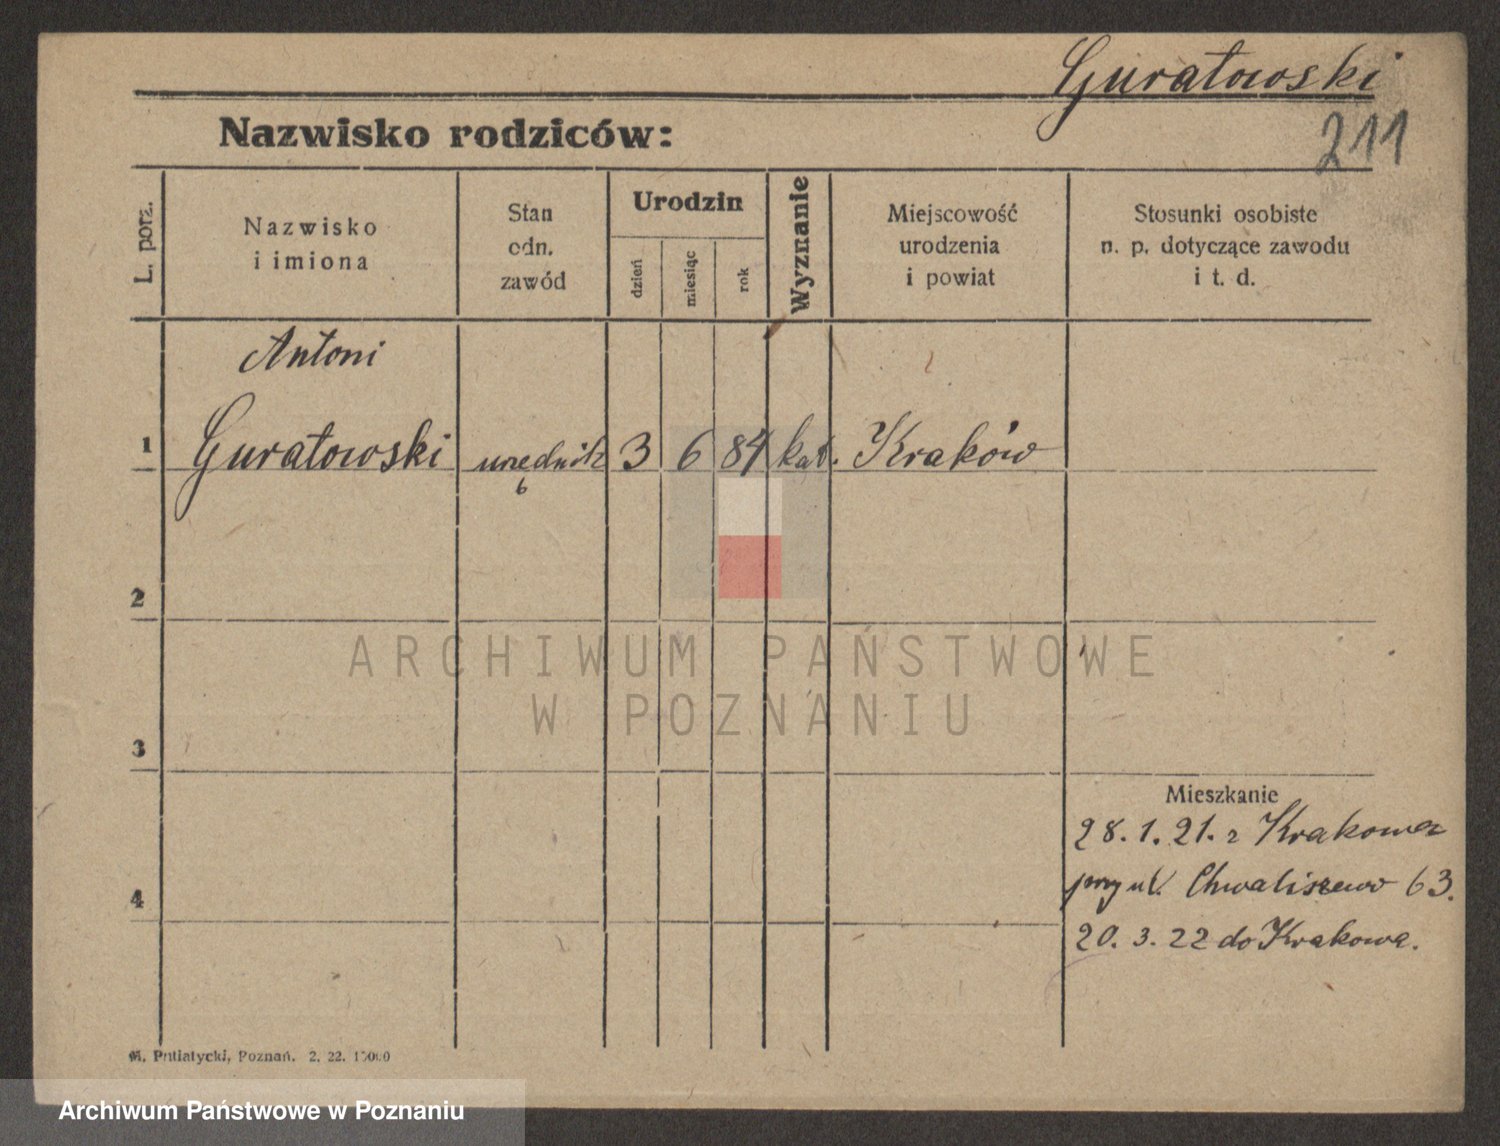 Guratowski
211
Nazwisko rodziców:
L. porz.
Nazwisko
i imiona
Stan
odn.
zawód
Urodzin
dzień
miesiąc
rok
Wyznanie
Miejscowość
urodzenia
i powiat
Stosunki osobiste
n. p. dotyczące zawodu
i t. d.
Antoni
1 Guratowski urzędnik 3 6 84 kat. Kraków
2
ARCHIWUM PAŃSTWOWE
W POZNANIU
3
Mieszkanie
28. 1. 21. z Krakowa
przy ul. Chwaliszewo 63.
4
20. 3. 22 do Krakowa.
Poznań. 2. 22.
Archiwum Państwowe w Poznaniu